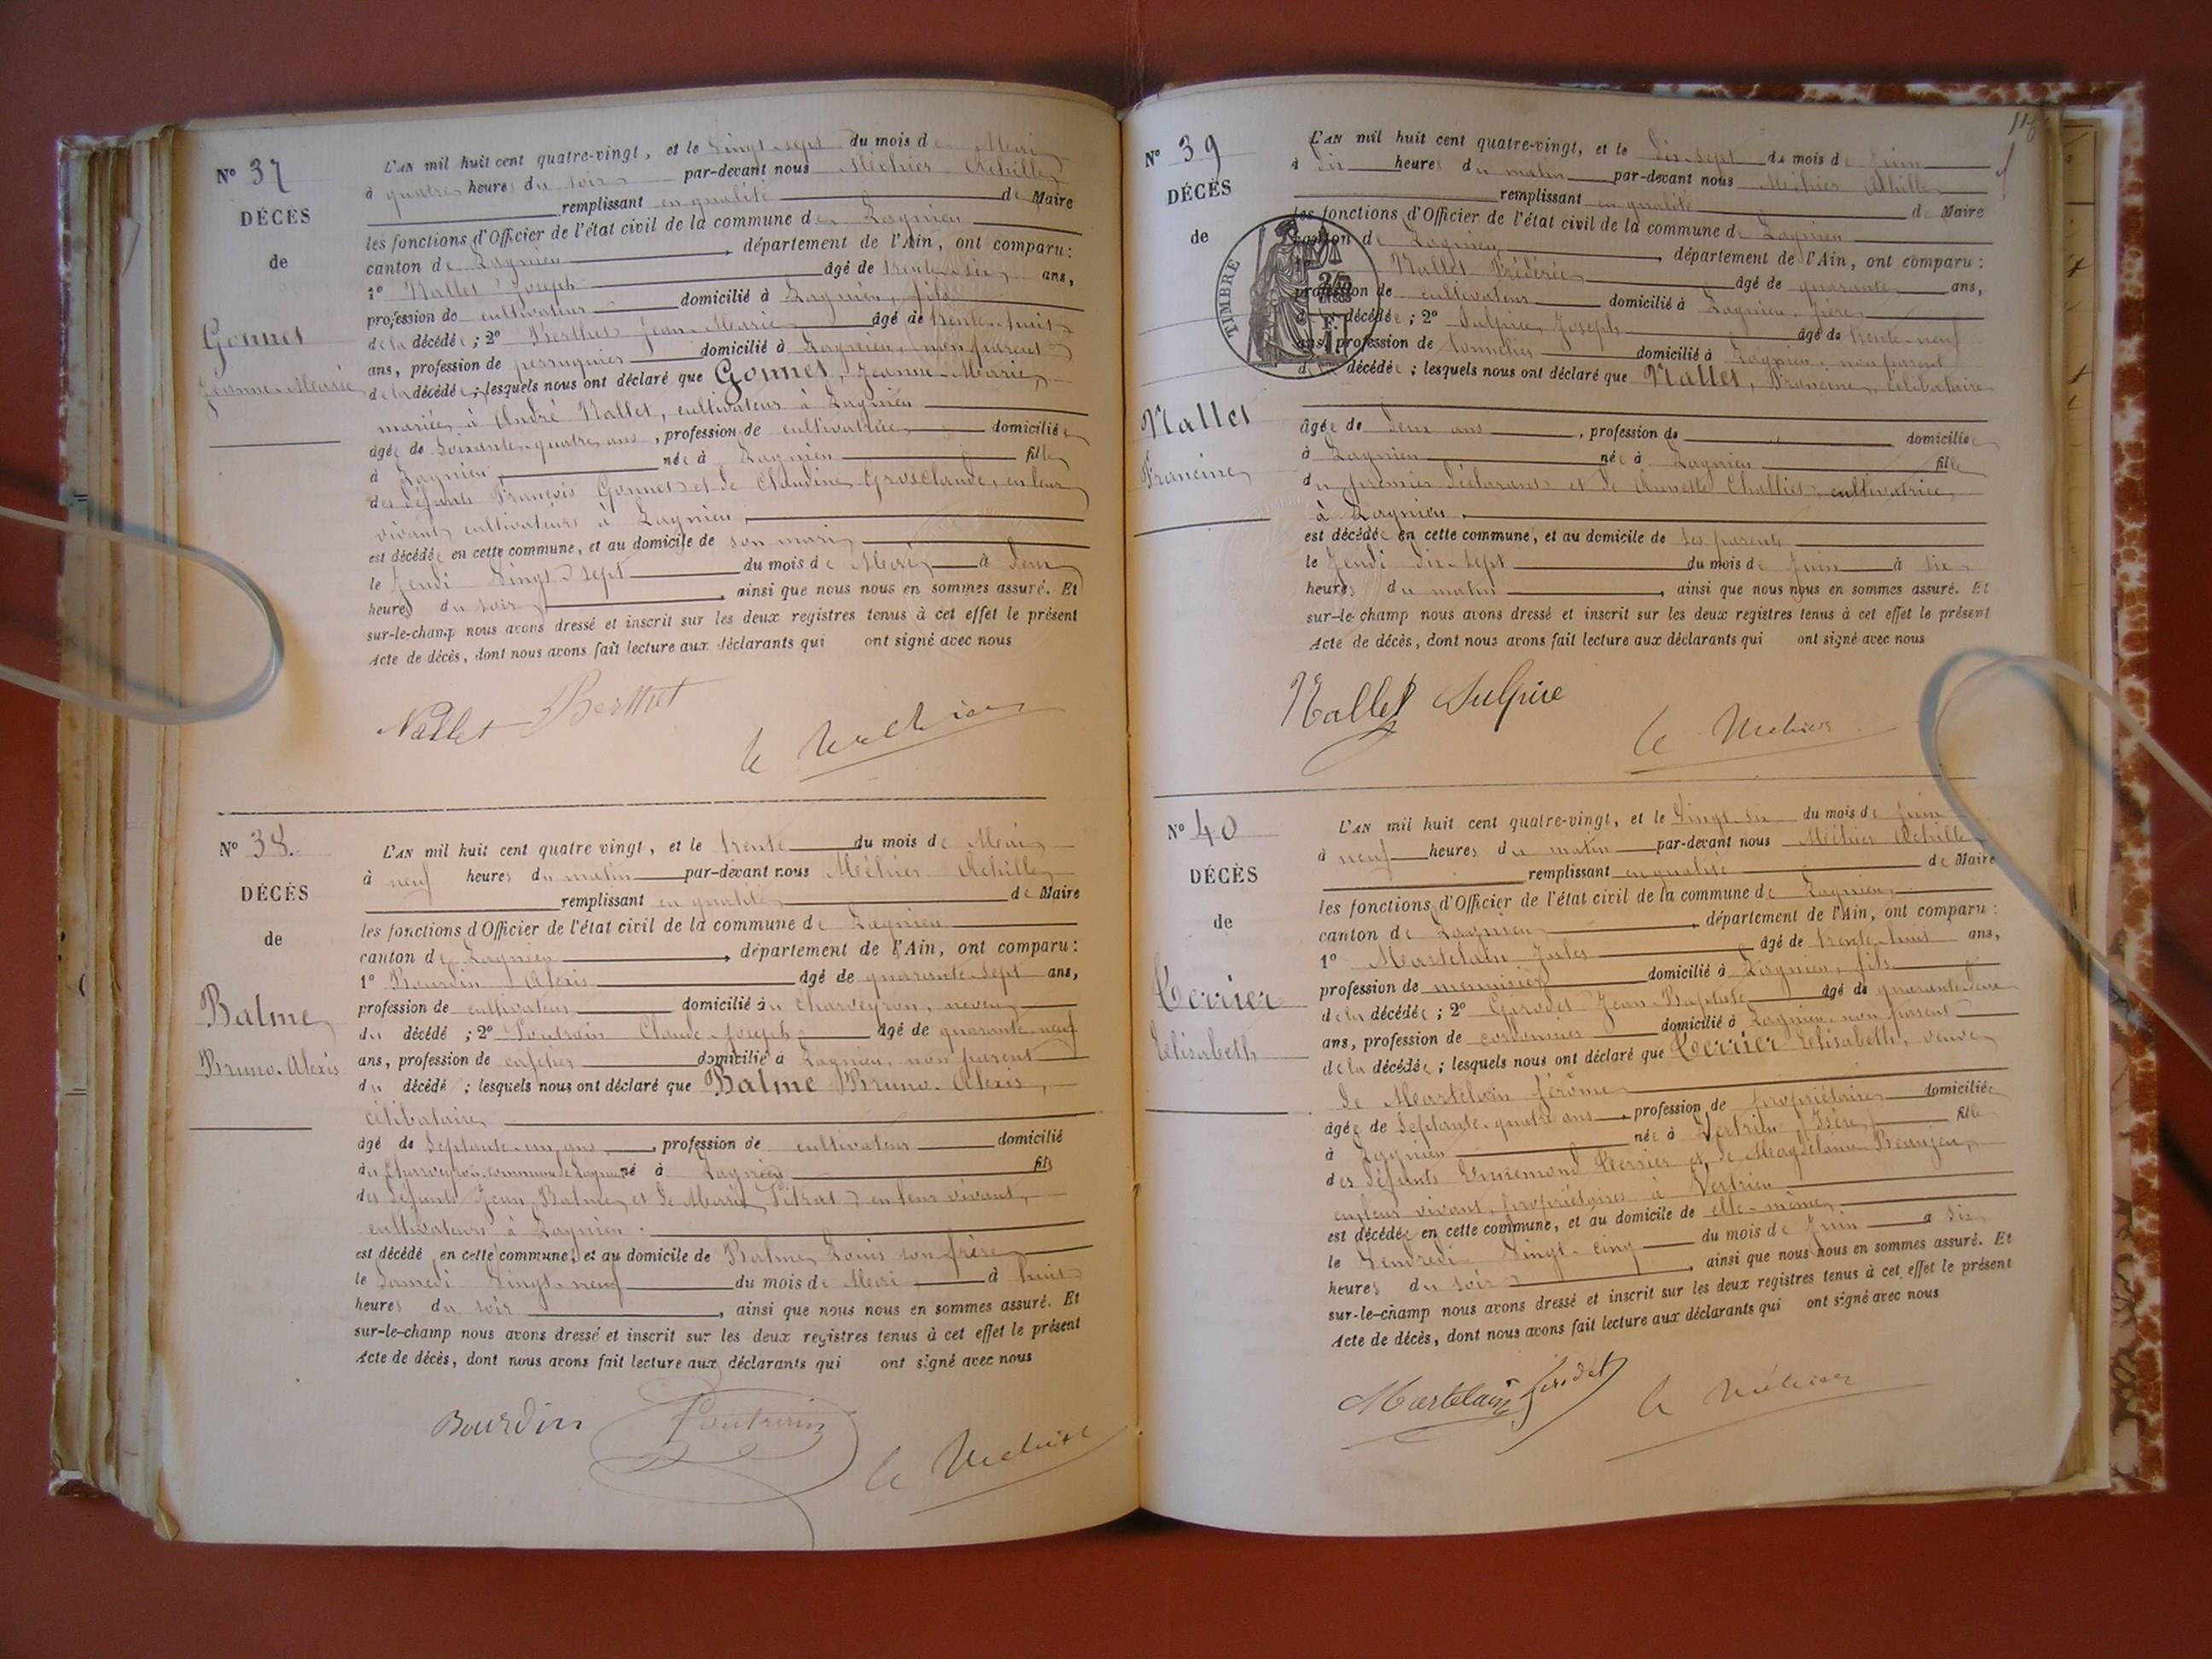 N° 37
DÉCÈS
de
Gonnet
Jeanne-Marie
L'AN mil huit cent quatre-vingt, et le vingt-sept du mois de Mai
à quatre heures du soir par-devant nous Méhier Achille
remplissant en qualité de Maire
les fonctions d'Officier de l'état civil de la commune de Lagnieu
canton de Lagnieu, département de l'Ain, ont comparu :
1° Nallet Joseph âgé de trente-six ans,
profession de cultivateur domicilié à Lagnieu, fils
de la décédée ; 2° Berthet Jean-Marie âgé de trente-huit
ans, profession de perruquier domicilié à Lagnieu, non parent
de la décédée ; lesquels nous ont déclaré que Gonnet, Jeanne-Marie,
mariée à André Nallet, cultivateur à Lagnieu
âgée de soixante-quatre ans, profession de cultivatrice domiciliée
à Lagnieu, née à Lagnieu fille
des défunts François Gonnet et de Claudine Grosclaude, en leur
vivant cultivateurs à Lagnieu,
est décédée en cette commune, et au domicile de son mari
le Jeudi vingt-sept du mois de Mai à deux
heures du soir, ainsi que nous nous en sommes assuré. Et
sur-le-champ nous avons dressé et inscrit sur les deux registres tenus à cet effet le présent
Acte de décès, dont nous avons fait lecture aux déclarants qui ont signé avec nous
Nallet Berthet
le Méhier
N° 38.
DÉCÈS
de
Balme
Bruno-Alexis
L'AN mil huit cent quatre vingt, et le trente du mois de Mai
à neuf heures du matin par-devant nous Méhier Achille
remplissant en qualité de Maire
les fonctions d'Officier de l'état civil de la commune de Lagnieu
canton de Lagnieu, département de l'Ain, ont comparu :
1° Bourdin Alexis âgé de quarante-sept ans,
profession de cultivateur domicilié au Charveyron, neveu
du décédé ; 2° Poutrain Claude-Joseph âgé de quarante-neuf
ans, profession de cafetier domicilié à Lagnieu, non parent
du décédé ; lesquels nous ont déclaré que Balme Bruno-Alexis,
célibataire
âgé de septante-un ans, profession de cultivateur domicilié
au Charveyron, commune de Lagnieu né à Lagnieu fils
des défunts Jean Balme et de Marie Pitrat, en leur vivant,
cultivateurs à Lagnieu.
est décédé en cette commune, et au domicile de Balme Louis son frère
le Samedi vingt-neuf du mois de Mai à huit
heures du soir, ainsi que nous nous en sommes assuré. Et
sur-le-champ nous avons dressé et inscrit sur les deux registres tenus à cet effet le présent
Acte de décès, dont nous avons fait lecture aux déclarants qui ont signé avec nous
Bourdin Poutrain
le Méhier
N° 39
DÉCÈS
de
Nallet
Francine
TIMBRE
L'AN mil huit cent quatre-vingt, et le dix-sept du mois de Juin
à dix heures du matin par-devant nous Méhier Achille
remplissant en qualité de Maire
les fonctions d'Officier de l'état civil de la commune de Lagnieu
canton de Lagnieu, département de l'Ain, ont comparu :
Nallet Frédéric âgé de quarante ans,
profession de cultivateur domicilié à Lagnieu, père
décédée ; 2° Sulpice Joseph âgé de trente-neuf
ans, profession de tonnelier domicilié à Lagnieu, non parent
décédée ; lesquels nous ont déclaré que Nallet, Francine, célibataire
âgée de deux ans, profession de domiciliée
à Lagnieu née à Lagnieu fille
du premier déclarant et de Annette Challiet, cultivatrice,
à Lagnieu.
est décédée en cette commune, et au domicile de ses parents
le Jeudi dix-sept du mois de Juin à six
heures du matin, ainsi que nous nous en sommes assuré. Et
sur-le-champ nous avons dressé et inscrit sur les deux registres tenus à cet effet le présent
Acte de décès, dont nous avons fait lecture aux déclarants qui ont signé avec nous
Nallet Sulpice
le Méhier
N° 40
DÉCÈS
de
Terrier
Elisabeth
L'AN mil huit cent quatre-vingt, et le vingt-six du mois de Juin
à neuf heures du matin par-devant nous Méhier Achille
remplissant en qualité de Maire
les fonctions d'Officier de l'état civil de la commune de Lagnieu
canton de Lagnieu, département de l'Ain, ont comparu :
1° Martelain Jules âgé de trente-huit ans,
profession de menuisier domicilié à Lagnieu, fils
de la décédée ; 2° Girodet Jean-Baptiste âgé de quarante-deux
ans, profession de cordonnier domicilié à Lagnieu, non parent
de la décédée ; lesquels nous ont déclaré que Terrier Elisabeth, veuve
de Martelain Jérôme
âgée de septante-quatre ans, profession de propriétaire domiciliée
à Lagnieu née à Vertrieu (Isère) fille
des défunts Ennemond Terrier et de Magdelaine Beaujeu,
en leur vivant, propriétaires à Vertrieu
est décédée en cette commune, et au domicile de elle-même
le Vendredi vingt-cinq du mois de Juin à six
heures du soir, ainsi que nous nous en sommes assuré. Et
sur-le-champ nous avons dressé et inscrit sur les deux registres tenus à cet effet le présent
Acte de décès, dont nous avons fait lecture aux déclarants qui ont signé avec nous
Martelain Girodet
le Méhier